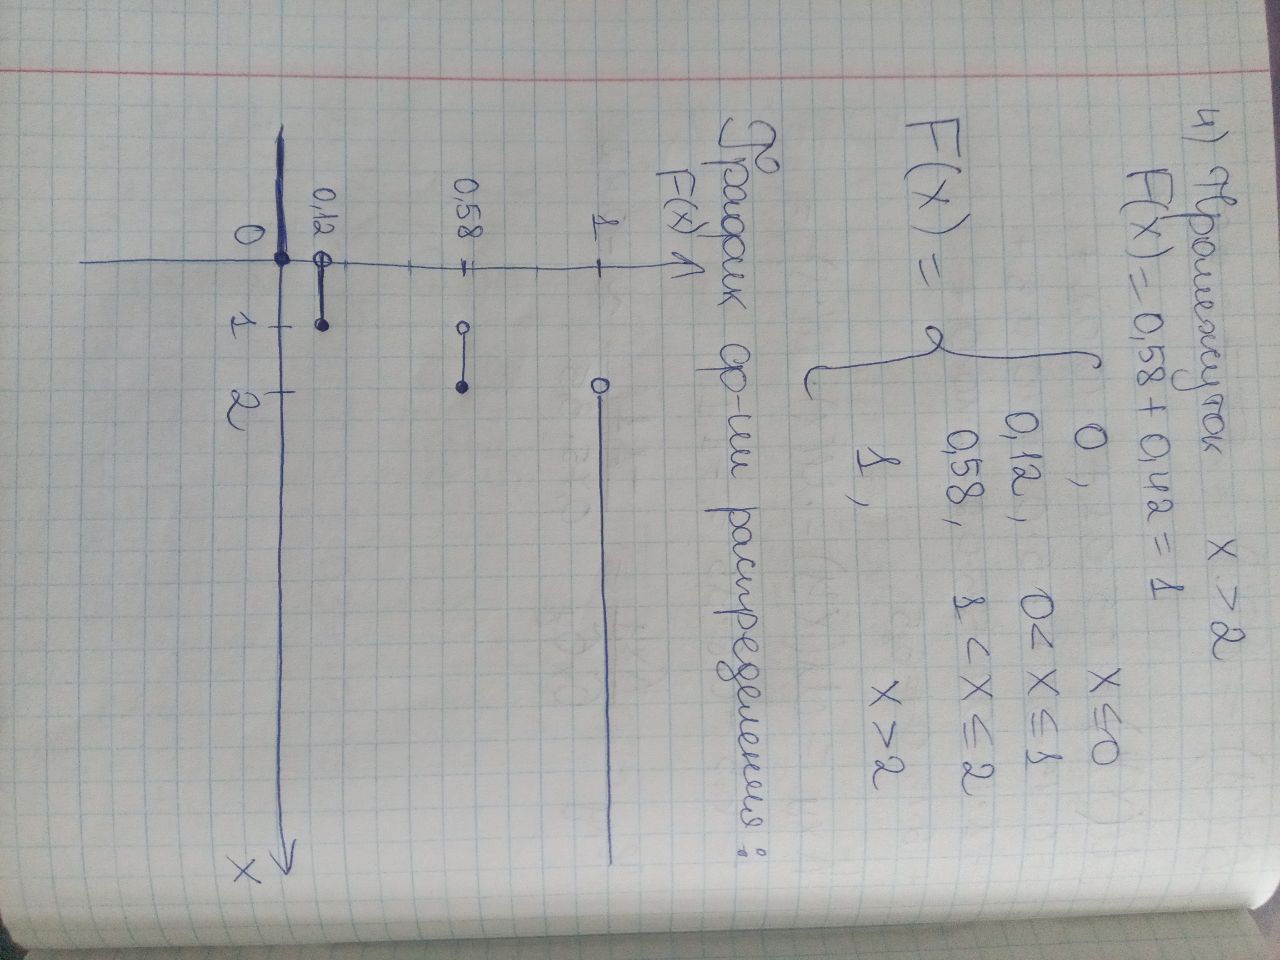 4) Промежуток x > 2
F(x) = 0,58 + 0,42 = 1
F(x) =
0, x ≤ 0
0,12, 0 < x ≤ 1
0,58, 1 < x ≤ 2
1, x > 2
График ф-ии распределения:
F(x)
1
0,58
0,12
0 1 2 x